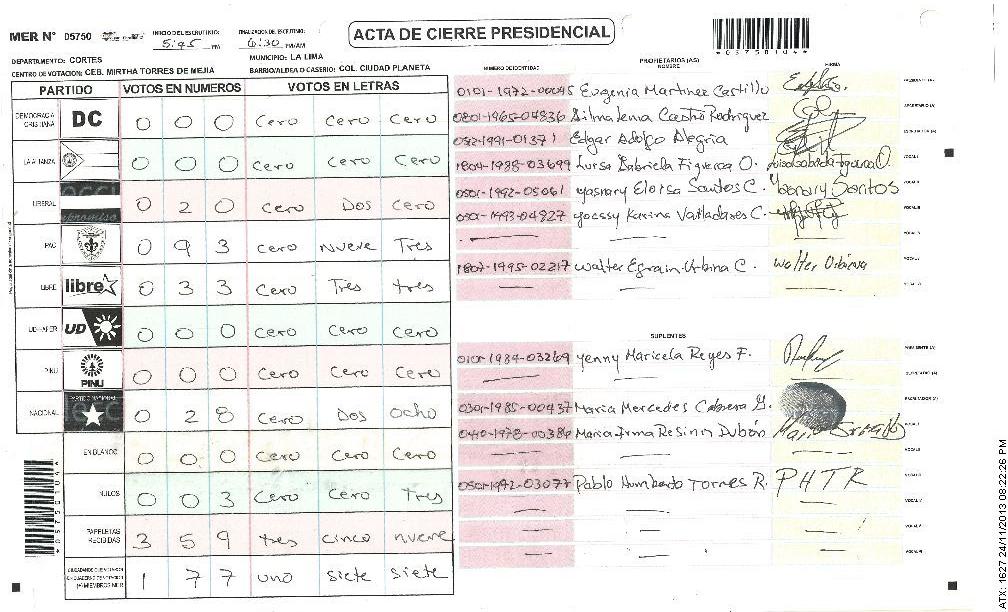 MER N° 05750
INICIO DEL ESCRUTINIO: 5:45 PM
FINALIZACION DEL ESCRUTINIO: 6:30 PM/AM
ACTA DE CIERRE PRESIDENCIAL
*05750104*
DEPARTAMENTO: CORTES
MUNICIPIO: LA LIMA
CENTRO DE VOTACION: CEB. MIRTHA TORRES DE MEJIA
BARRIO/ALDEA O CASERIO: COL. CIUDAD PLANETA
PARTIDO VOTOS EN NUMEROS VOTOS EN LETRAS
DEMOCRACIA CRISTIANA DC 0 0 0 Cero Cero Cero
LA ALIANZA 0 0 0 Cero Cero Cero
LIBERAL 0 2 0 Cero Dos Cero
PAC 0 9 3 Cero Nueve Tres
LIBRE libre 0 3 3 Cero Tres tres
UD-FAPER UD 0 0 0 Cero Cero Cero
PINU PINU 0 0 0 Cero Cero Cero
NACIONAL PARTIDO NACIONAL 0 2 8 Cero Dos ocho
EN BLANCO 0 0 0 Cero Cero Cero
NULOS 0 0 3 Cero Cero Tres
PAPELETAS RECIBIDAS 3 5 9 tres cinco nueve
1 7 7 uno siete siete
PROPIETARIOS (AS)
NUMERO DE IDENTIDAD NOMBRE FIRMA
0101-1972-00045 Eugenia Martinez Castillo
0801-1965-04836 Silma Lema Castro Rodriguez
Edgar Adolfo Alegria
1804-1988-03699 Luisa Gabriela Figueroa O.
0501-1992-05061 Yasnary Eloisa Santos C. Yasnary Santos
0501-1993-04827 Yoessy Karina Valladares C.
1807-1995-02217 Walter Efrain Urbina C. Walter Urbina
SUPLENTES
0101-1984-03269 Yenny Maricela Reyes F.
0301-1985-00437 Maria Mercedes Cabrera G.
Maria Irma Resinin Dubón
0501-1992-03077 Pablo Humberto Torres R. PHTR
*05750104*
ATX: 1627 24/11/2013 08:22:26 PM